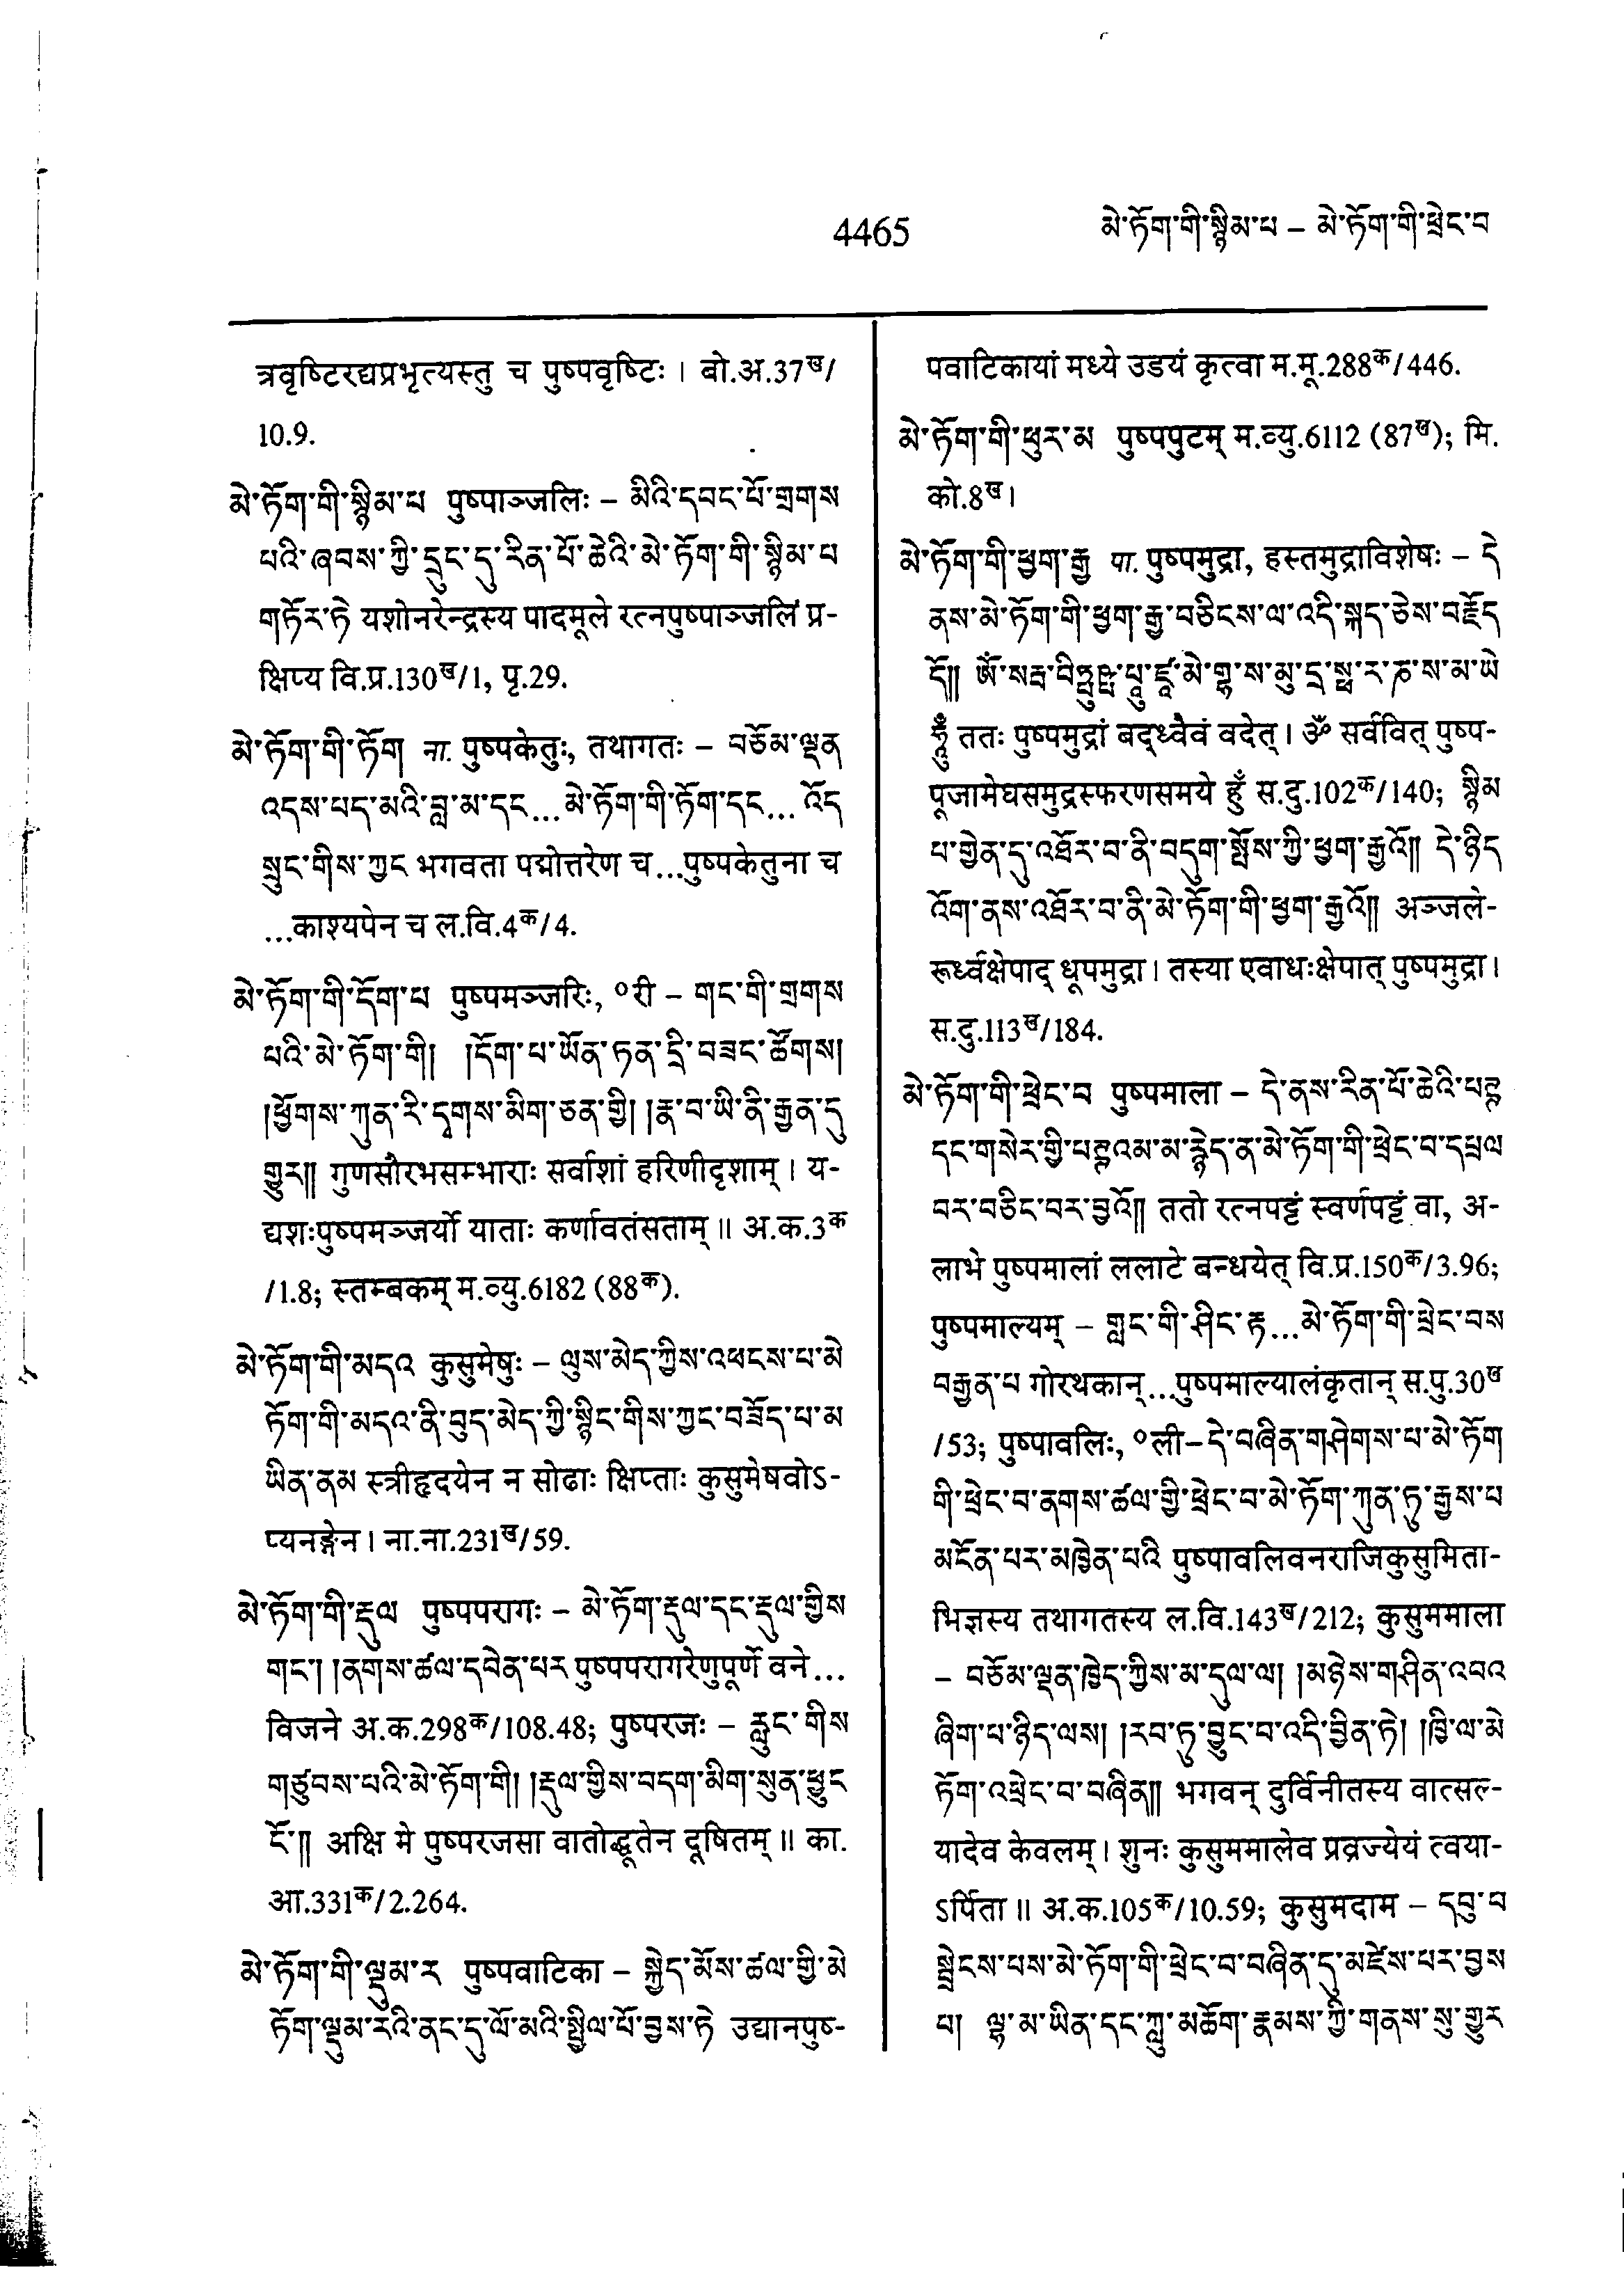 4465
མེ་ཏོག་གི་སྙིམ་པ – མེ་ཏོག་གི་ཕྲེང་བ
त्रवृष्टिरद्यप्रभृत्यस्तु च पुष्पवृष्टिः । बो.अ.37ख/
10.9.
མེ་ཏོག་གི་སྙིམ་པ पुष्पाञ्जलिः – མིའི་དབང་པོ་གྲགས
པའི་ཞབས་ཀྱི་དྲུང་དུ་རིན་པོ་ཆེའི་མེ་ཏོག་གི་སྙིམ་པ
གཏོར་ཏེ यशोनरेन्द्रस्य पादमूले रत्नपुष्पाञ्जलिं प्र-
क्षिप्य वि.प्र.130ख/1, पृ.29.
མེ་ཏོག་གི་ཏོག ना. पुष्पकेतुः, तथागतः – བཅོམ་ལྡན
འདས་པད་མའི་བླ་མ་དང...མེ་ཏོག་གི་ཏོག་དང... འོད
སྲུང་གིས་ཀྱང भगवता पद्मोत्तरेण च...पुष्पकेतुना च
...काश्यपेन च ल.वि.4क/4.
མེ་ཏོག་གི་དོག་པ पुष्पमञ्जरिः, ०री – གང་གི་གྲགས
པའི་མེ་ཏོག་གི། །དོག་པ་ཡོན་ཏན་དྲི་བཟང་ཚོགས།
།ཕྱོགས་ཀུན་རི་དྭགས་མིག་ཅན་གྱི། །རྣ་བ་ཡི་ནི་རྒྱན་དུ
གྱུར།། गुणसौरभसम्भाराः सर्वाशां हरिणीदृशाम् । य-
द्यशःपुष्पमञ्जर्यो याताः कर्णावतंसताम् ॥ अ.क.3क
/1.8; स्तम्बकम् म.व्यु.6182 (88क).
མེ་ཏོག་གི་མདའ कुसुमेषुः – ལུས་མེད་ཀྱིས་འཕངས་པ་མེ
ཏོག་གི་མདའ་ནི་བུད་མེད་ཀྱི་སྙིང་གིས་ཀྱང་བཟོད་པ་མ
ཡིན་ནམ स्त्रीहृदयेन न सोढाः क्षिप्ताः कुसुमेषवोऽ-
प्यनङ्गेन । ना.ना.231ख/59.
མེ་ཏོག་གི་རྡུལ पुष्पपरागः – མེ་ཏོག་རྡུལ་དང་རྡུལ་གྱིས
གང་། །ནགས་ཚལ་དབེན་པར पुष्पपरागरेणुपूर्णे वने...
विजने अ.क.298क/108.48; पुष्परजः – རླུང་གིས
གཙུབས་པའི་མེ་ཏོག་གི། །རྡུལ་གྱིས་བདག་མིག་སུན་ཕྱུང
ངོ་།། अक्षि मे पुष्परजसा वातोद्धूतेन दूषितम् ॥ का.
आ.331क/2.264.
མེ་ཏོག་གི་ལྡུམ་ར पुष्पवाटिका – སྐྱེད་མོས་ཚལ་གྱི་མེ
ཏོག་ལྡུམ་རའི་ནང་དུ་ལོ་མའི་སྤྱིལ་པོ་བྱས་ཏེ उद्यानपुष्-
पवाटिकायां मध्ये उडयं कृत्वा म.मू.288क/446.
མེ་ཏོག་གི་ཕུར་མ पुष्पपुटम् म.व्यु.6112 (87ख); मि.
को.8ख।
མེ་ཏོག་གི་ཕྱག་རྒྱ पा. पुष्पमुद्रा, हस्तमुद्राविशेषः – དེ
ནས་མེ་ཏོག་གི་ཕྱག་རྒྱ་བཅིངས་ལ་འདི་སྐད་ཅེས་བརྗོད
དོ།། ཨོཾ་སརྦ་བིཏྤུཥྤ་པཱུ་ཛཱ་མེ་གྷ་ས་མུ་དྲ་སྥ་ར་ཎ་ས་མ་ཡེ
ཧཱུྃ ततः पुष्पमुद्रां बद्ध्वैवं वदेत् । ॐ सर्ववित् पुष्प-
पूजामेघसमुद्रस्फरणसमये हुँ स.दु.102क/140; སྙིམ
པ་གྱེན་དུ་འཐོར་བ་ནི་བདུག་སྤོས་ཀྱི་ཕྱག་རྒྱའོ།། དེ་ཉིད
འོག་ནས་འཐོར་བ་ནི་མེ་ཏོག་གི་ཕྱག་རྒྱའོ།། अञ्जले-
रूर्ध्वक्षेपाद् धूपमुद्रा । तस्या एवाधःक्षेपात् पुष्पमुद्रा ।
स.दु.113ख/184.
མེ་ཏོག་གི་ཕྲེང་བ पुष्पमाला – དེ་ནས་རིན་པོ་ཆེའི་པཊྚ
དང་གསེར་གྱི་པཊྚའམ་མ་རྙེད་ན་མེ་ཏོག་གི་ཕྲེང་བ་དཔྲལ
བར་བཅིང་བར་བྱའོ།། ततो रत्नपट्टं स्वर्णपट्टं वा, अ-
लाभे पुष्पमालां ललाटे बन्धयेत् वि.प्र.150क/3.96;
पुष्पमाल्यम् – གླང་གི་ཤིང་རྟ...མེ་ཏོག་གི་ཕྲེང་བས
བརྒྱན་པ गोरथकान्...पुष्पमाल्यालंकृतान् स.पु.30ख
/53; पुष्पावलिः, ०ली–དེ་བཞིན་གཤེགས་པ་མེ་ཏོག
གི་ཕྲེང་བ་ནགས་ཚལ་གྱི་ཕྲེང་བ་མེ་ཏོག་ཀུན་ཏུ་རྒྱས་པ
མངོན་པར་མཁྱེན་པའི पुष्पावलिवनराजिकुसुमिता-
भिज्ञस्य तथागतस्य ल.वि.143ख/212; कुसुममाला
– བཅོམ་ལྡན་ཁྱེད་ཀྱིས་མ་དུལ་ལ། །མཉེས་གཤིན་འབའ
ཞིག་པ་ཉིད་ལས། །རབ་ཏུ་བྱུང་བ་འདི་བྱིན་ཏེ། །ཁྱི་ལ་མེ
ཏོག་འཕྲེང་བ་བཞིན།། भगवन् दुर्विनीतस्य वात्सल्-
यादेव केवलम् । शुनः कुसुममालेव प्रव्रज्येयं त्वया-
ऽर्पिता ॥ अ.क.105क/10.59; कुसुमदाम – དབུ་བ
སྦྲེངས་པས་མེ་ཏོག་གི་ཕྲེང་བ་བཞིན་དུ་མཛེས་པར་བྱས
པ། ལྷ་མ་ཡིན་དང་ཀླུ་མཆོག་རྣམས་ཀྱི་གནས་སུ་གྱུར